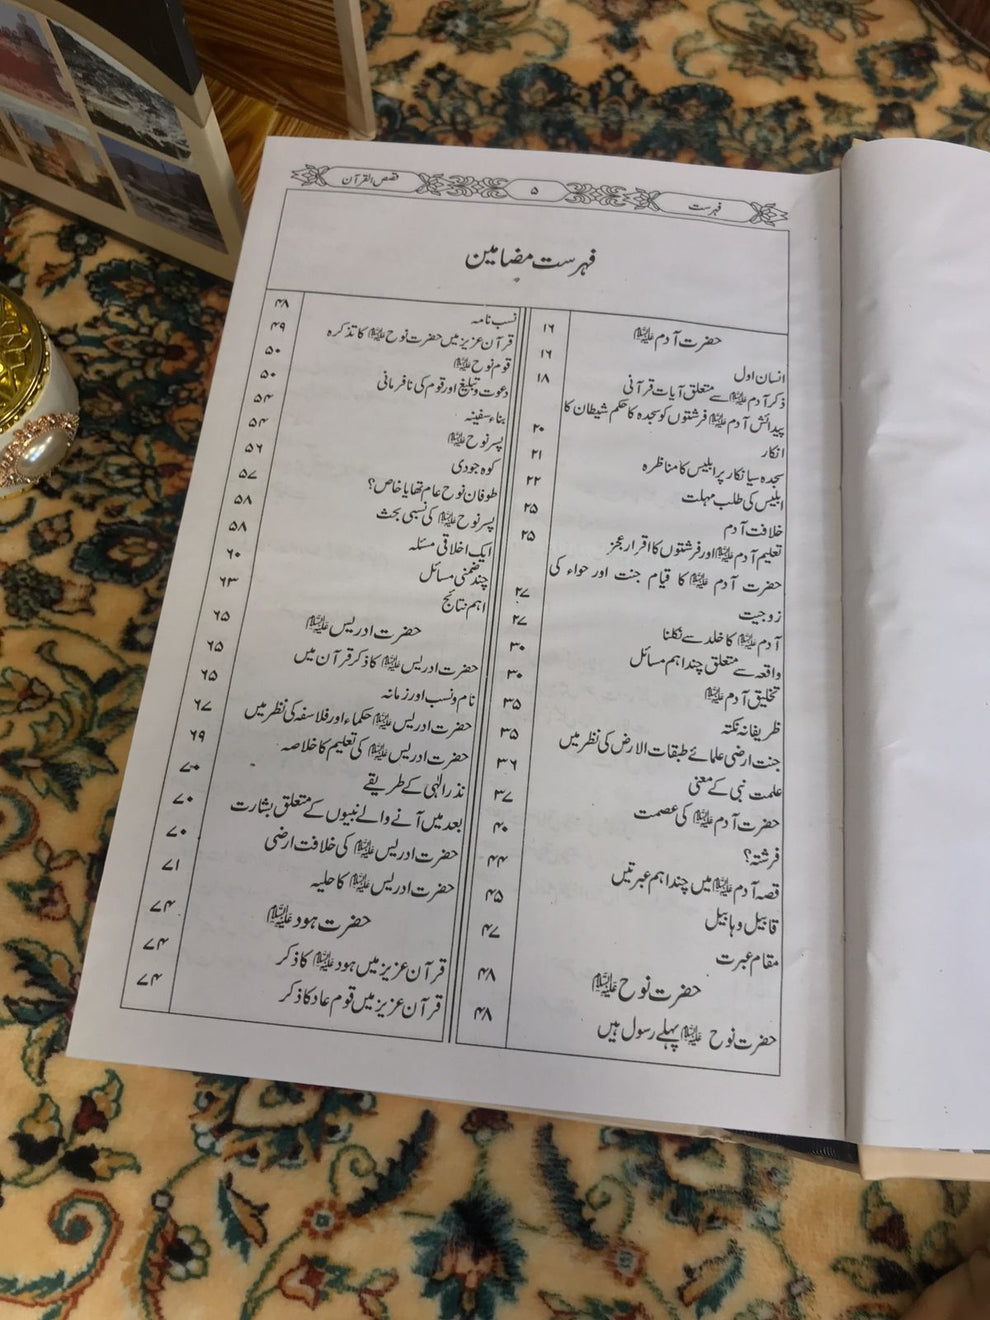 فہرست
۵
قصص القرآن
فہرست مضامین
حضرت آدم علیہ السلام ۱۶
انسان اول ۱۶
ذکر آدم علیہ السلام سے متعلق آیات قرآنی ۱۸
پیدائش آدم علیہ السلام فرشتوں کو سجدہ کا حکم شیطان کا
انکار ۲۰
سجدہ سے انکار پر ابلیس کا مناظرہ ۲۱
ابلیس کی طلب مہلت ۲۲
خلافت آدم ۲۵
تعلیم آدم علیہ السلام اور فرشتوں کا اقرار عجز ۲۵
حضرت آدم علیہ السلام کا قیام جنت اور حواء کی
زوجیت ۲۷
آدم علیہ السلام کا خلد سے نکلنا ۲۷
واقعہ سے متعلق چند اہم مسائل ۳۰
تخلیق آدم علیہ السلام ۳۰
ظریفانہ نکتہ ۳۵
جنت ارضی علمائے طبقات الارض کی نظر میں ۳۵
علمت نبی کے معنی ۳۶
حضرت آدم علیہ السلام کی عصمت ۳۷
فرشتہ؟ ۴۰
قصہ آدم علیہ السلام میں چند اہم عبرتیں ۴۴
قابیل و ہابیل ۴۵
مقام عبرت ۴۷
حضرت نوح علیہ السلام ۴۸
حضرت نوح علیہ السلام پہلے رسول ہیں ۴۸
نسب نامہ ۴۸
قرآن عزیز میں حضرت نوح علیہ السلام کا تذکرہ ۴۹
قوم نوح علیہ السلام ۵۰
دعوت و تبلیغ اور قوم کی نافرمانی ۵۰
بناء سفینہ ۵۴
پسر نوح علیہ السلام ۵۴
کوہ جودی ۵۶
طوفان نوح عام تھا یا خاص؟ ۵۷
پسر نوح علیہ السلام کی نسبی بحث ۵۸
ایک اخلاقی مسئلہ ۵۸
چند ضمنی مسائل ۶۰
اہم نتائج ۶۳
حضرت ادریس علیہ السلام ۶۵
حضرت ادریس علیہ السلام کا ذکر قرآن میں ۶۵
نام و نسب اور زمانہ ۶۵
حضرت ادریس علیہ السلام حکماء اور فلاسفہ کی نظر میں ۶۷
حضرت ادریس علیہ السلام کی تعلیم کا خلاصہ ۶۹
نذر الٰہی کے طریقے ۷۰
بعد میں آنے والے نبیوں کے متعلق بشارت ۷۰
حضرت ادریس علیہ السلام کی خلافت ارضی ۷۰
حضرت ادریس علیہ السلام کا حلیہ ۷۱
حضرت ہود علیہ السلام ۷۴
قرآن عزیز میں ہود علیہ السلام کا ذکر ۷۴
قرآن عزیز میں قوم عاد کا ذکر ۷۴